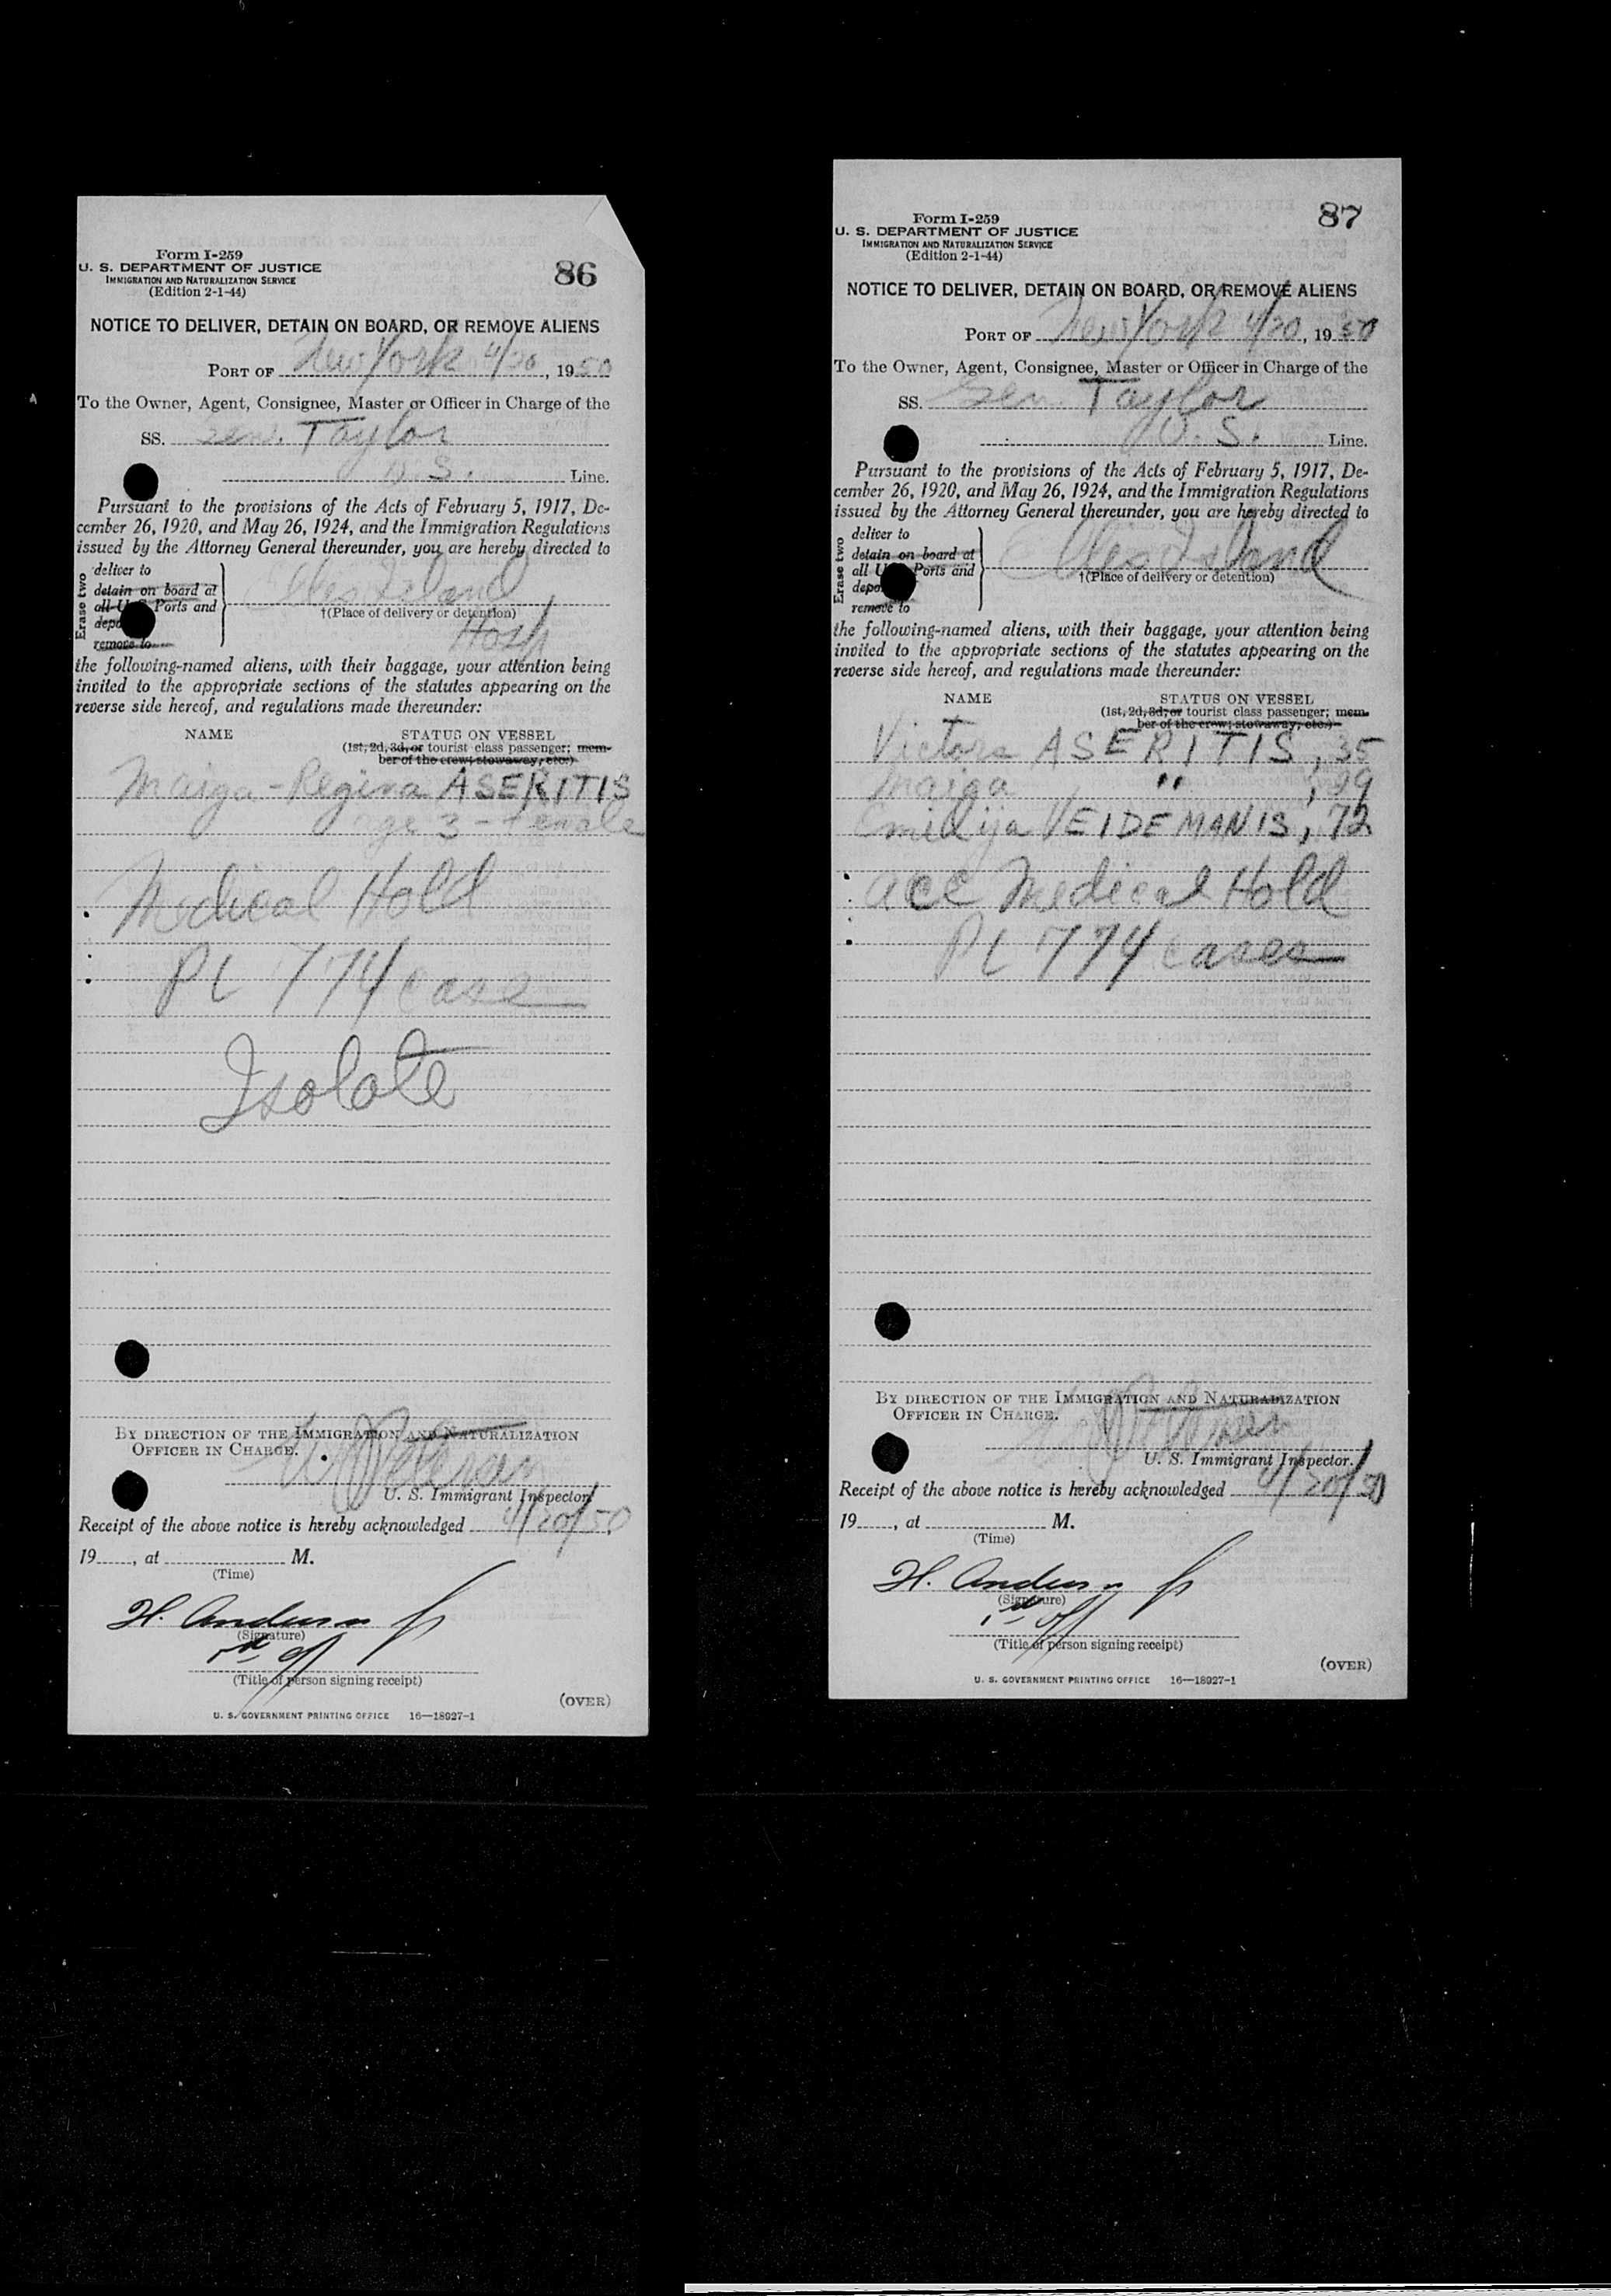 Form I-259
86
U. S. DEPARTMENT OF JUSTICE
IMMIGRATION AND NATURALIZATION SERVICE
(Edition 2-1-44)
NOTICE TO DELIVER, DETAIN ON BOARD, OR REMOVE ALIENS
PORT OF New York 4/20, 1950
To the Owner, Agent, Consignee, Master or Officer in Charge of the
SS. Gen. Taylor
U. S. Line.
Pursuant to the provisions of the Acts of February 5, 1917, De-
cember 26, 1920, and May 26, 1924, and the Immigration Regulations
issued by the Attorney General thereunder, you are hereby directed to
Erase two
deliver to
detain on board at
all U Ports and
remove to
Ellis Island
†(Place of delivery or detention)
Hosp
the following-named aliens, with their baggage, your attention being
invited to the appropriate sections of the statutes appearing on the
reverse side hereof, and regulations made thereunder:
NAME STATUS ON VESSEL
(1st, 2d, 3d, or tourist class passenger; mem-
ber of the crew; stowaway, etc.)
Maiga-Regina ASERITIS
age 3 - Female
Medical Hold
PL 774 case
Isolate
BY DIRECTION OF THE IMMIGRATION AND NATURALIZATION
OFFICER IN CHARGE.
U. S. Immigrant Inspector
Receipt of the above notice is hereby acknowledged 4/20/50
19, at M.
(Time)
H. Anderson Jr
(Signature)
off
(Title of person signing receipt)
(OVER)
U. S. GOVERNMENT PRINTING OFFICE 16—18927-1
Form I-259
87
U. S. DEPARTMENT OF JUSTICE
IMMIGRATION AND NATURALIZATION SERVICE
(Edition 2-1-44)
NOTICE TO DELIVER, DETAIN ON BOARD, OR REMOVE ALIENS
PORT OF New York 4/20, 1950
To the Owner, Agent, Consignee, Master or Officer in Charge of the
SS. Gen. Taylor
U. S. Line.
Pursuant to the provisions of the Acts of February 5, 1917, De-
cember 26, 1920, and May 26, 1924, and the Immigration Regulations
issued by the Attorney General thereunder, you are hereby directed to
Erase two
deliver to
detain on board at
all U Ports and
remove to
Ellis Island
†(Place of delivery or detention)
the following-named aliens, with their baggage, your attention being
invited to the appropriate sections of the statutes appearing on the
reverse side hereof, and regulations made thereunder:
NAME STATUS ON VESSEL
(1st, 2d, 3d, or tourist class passenger; mem-
ber of the crew; stowaway, etc.)
Victors ASERITIS, 35
Maiga " , 29
Emilija VEIDEMANIS, 72
acc Medical Hold
PL 774 cases
BY DIRECTION OF THE IMMIGRATION AND NATURALIZATION
OFFICER IN CHARGE.
U. S. Immigrant Inspector.
Receipt of the above notice is hereby acknowledged 4/20/50
19, at M.
(Time)
H. Anderson Jr
(Signature)
1st off
(Title of person signing receipt)
(OVER)
U. S. GOVERNMENT PRINTING OFFICE 16—18927-1